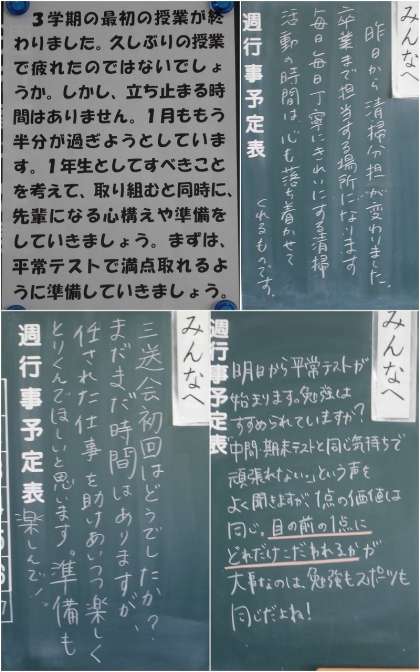 3学期の最初の授業が終
わりました。久しぶりの授業
で疲れたのではないでしょ
うか。しかし、立ち止まる時
間はありません。1月ももう
半分が過ぎようとしていま
す。1年生としてすべきこと
を考えて、取り組むと同時に、
先輩になる心構えや準備を
していきましょう。まずは、
平常テストで満点取れるよ
うに準備していきましょう。
みんなへ
週行事予定表
昨日から清掃分担が変わりました。
卒業まで担当する場所になります
毎日毎日丁寧にきれいにする清掃
活動の時間は、心も落ち着かせて
くれるものです。
みんなへ
週行事予定表
三送会初回はどうでしたか?
まだまだ時間はありますが、
任された仕事を助けあいつつ楽しく
とりくんでほしいと思います。準備も
楽しんで!
みんなへ
週行事予定表
明日から平常テストが
始まります。勉強は
すすめられていますか?
「中間・期末テストと同じ気持ちで
頑張れない」という声を
よく聞きますが、1点の価値は
同じ。目の前の1点に
どれだけこだわれるかが
大事なのは、勉強もスポーツも
同じだよね!